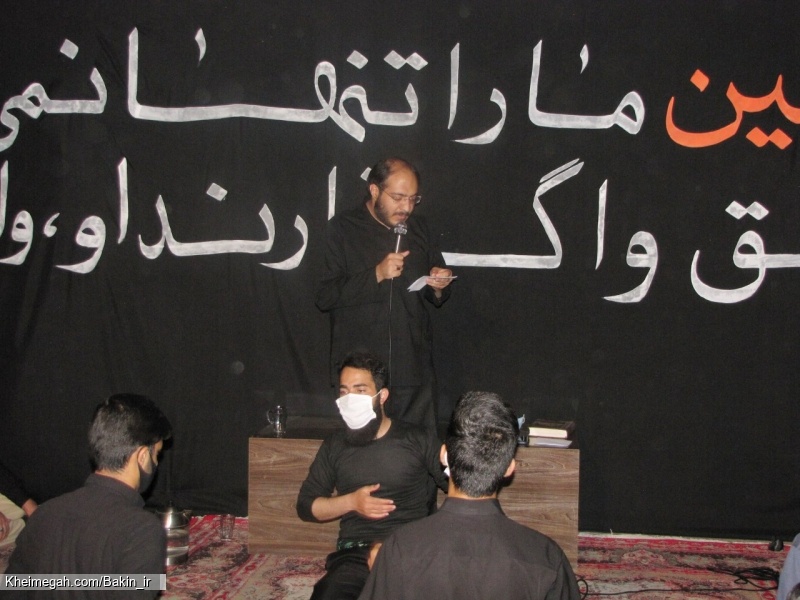 ما را تنها نمی
واگذارند او، وا
Kheimegah.com/Bakin_ir